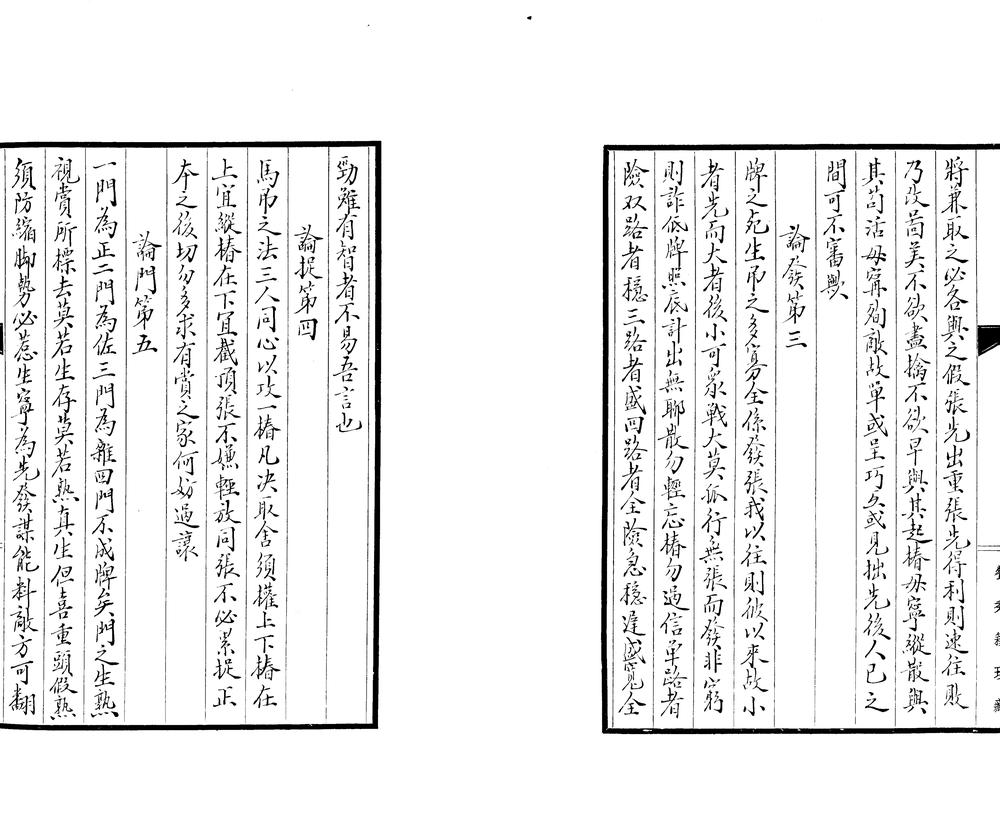 將兼取之必各與之假張先出重張先得利則速往敗
乃改茵美不欲盡擒不欲早與其起樁毋寧縱散與
其苟活毋寧殉敵故單或呈巧久或見拙先後人已之
間可不審歟
論發第三
牌之死生吊之多寡全係發張我以往則彼以來故小
者先而大者後小可衆戰大莫孤行無張而發非窮
則詐低牌照底計出無聊散勿輕忘樁勿過信單路者
險双路者穩三路者盛四路者全險急穩遲盛寬全
勁雖有智者不易吾言也
論捉第四
馬吊之法三人同心以攻一樁凡决取舍須權上下樁在
上宜縱樁在下宜截頂張不嫌輕放同張不必累捉正
本之後切勿多求有賞之家何妨過讓
論門第五
一門為正二門為佐三門為雜四門不成牌矣門之生熟
視賞所標去莫若生存莫若熟真生但喜重頭假熟
須防縮脚勢必惹生寧為先發謀能料敵方可翻